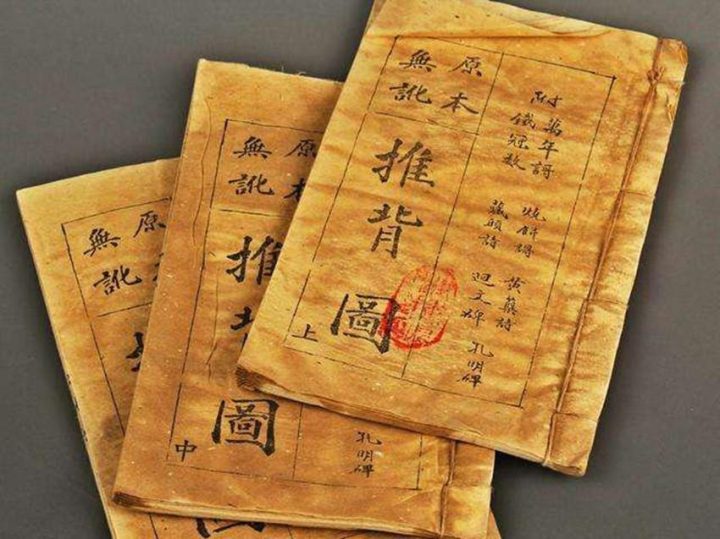 附
萬年謌
鐵冠數
燒餅謌
藏頭詩
黃蘗詩
迴文碑
孔明碑
原本
無訛
推背圖
上
原本
無訛
推背圖
中
孔明碑
原
無訛